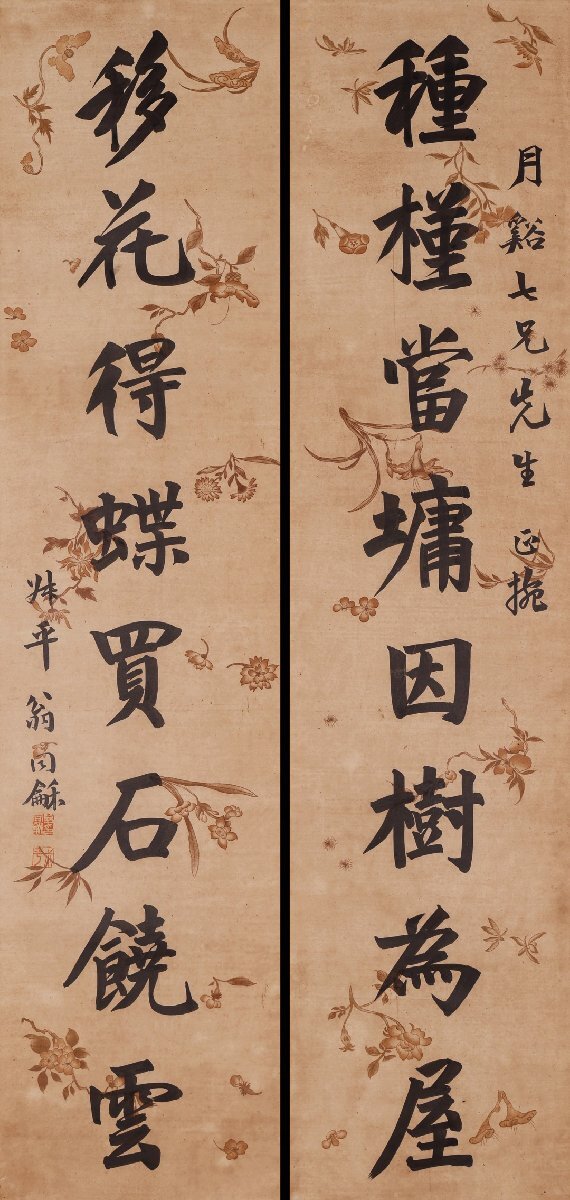 月谿七兄先生正捥
種槿當墉因樹為屋
移花得蝶買石饒雲
叔平翁同龢